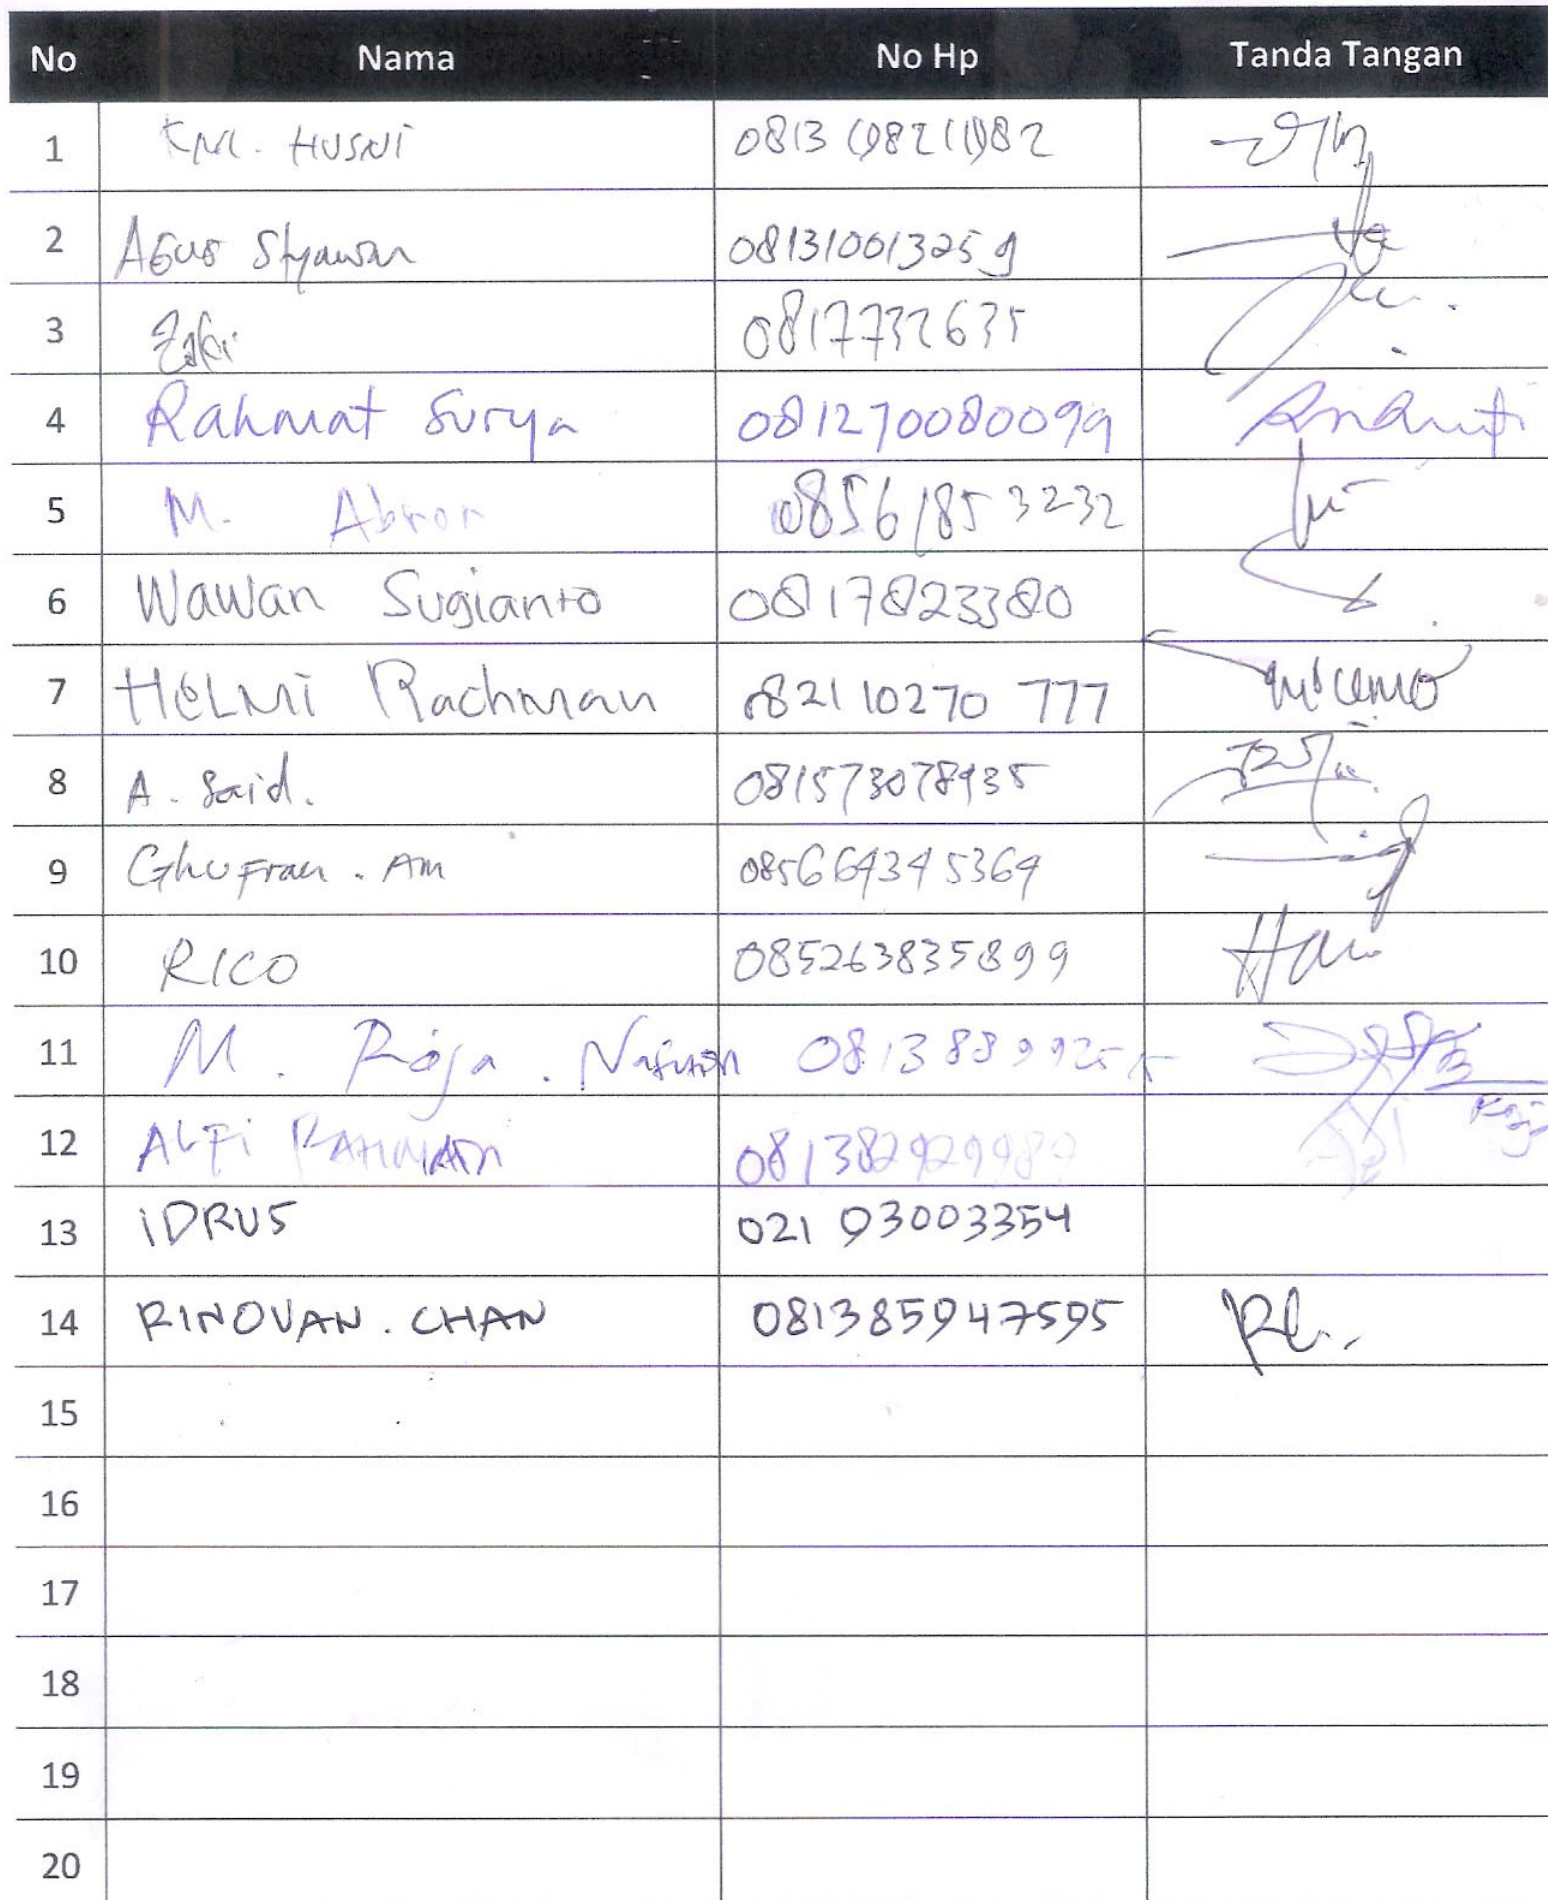 No Nama No Hp Tanda Tangan
1 HUSNI
2 Agus Styawan 081310013259
3 Zaki 0817732635
4 Rahmat Surya 081270080099
5 M. Abror 08561853232
6 Wawan Sugianto 0817823380
7 HELMI Rachman 082110270 777
8 A. Said. 081573078935
9 Ghufran. Am 085664345364
10 RICO 085263835899
11 M. Roja. Nasution
12 ALFI RAHMAN
13 IDRUS 021 93003354
14 RINOVAN. CHAN 081385947595
15
16
17
18
19
20